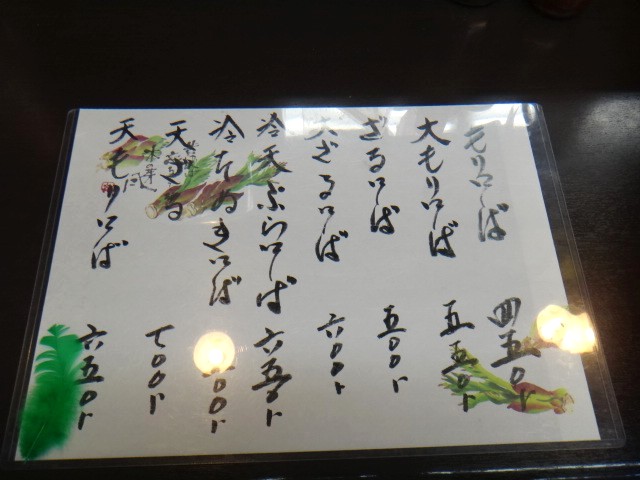 もりそば 四五〇円
大もりそば 五五〇円
ざるそば 五〇〇円
大ざるそば 六〇〇円
冷天ぷらそば 六五〇円
冷たぬきそば 〇〇円
天ざる 七〇〇円
天もりそば 六五〇円